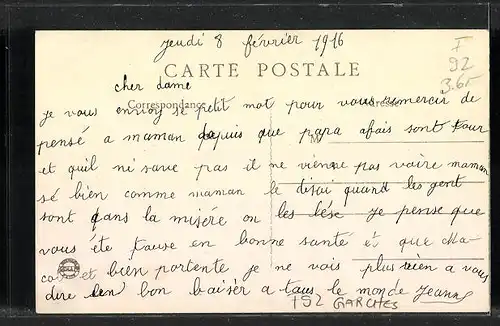 jeudi 8 février 1916
CARTE POSTALE
F
92
3.6
Correspondance
Adresse
cher dame
je vous envoiy se petit mot pour vous remercir de
pensé a maman depuis que papa a fais sont tour
et quil ni save pas il ne vienne pas vaire maman
sé bien comme maman le disai quand les gent
sont dans la misére on les lése je pense que
vous éte tause en bonne santé et que
et bien portente je ne vois plus rien a vous
dire un bon baisér a tous le monde Jeanne
T52 GARCHES